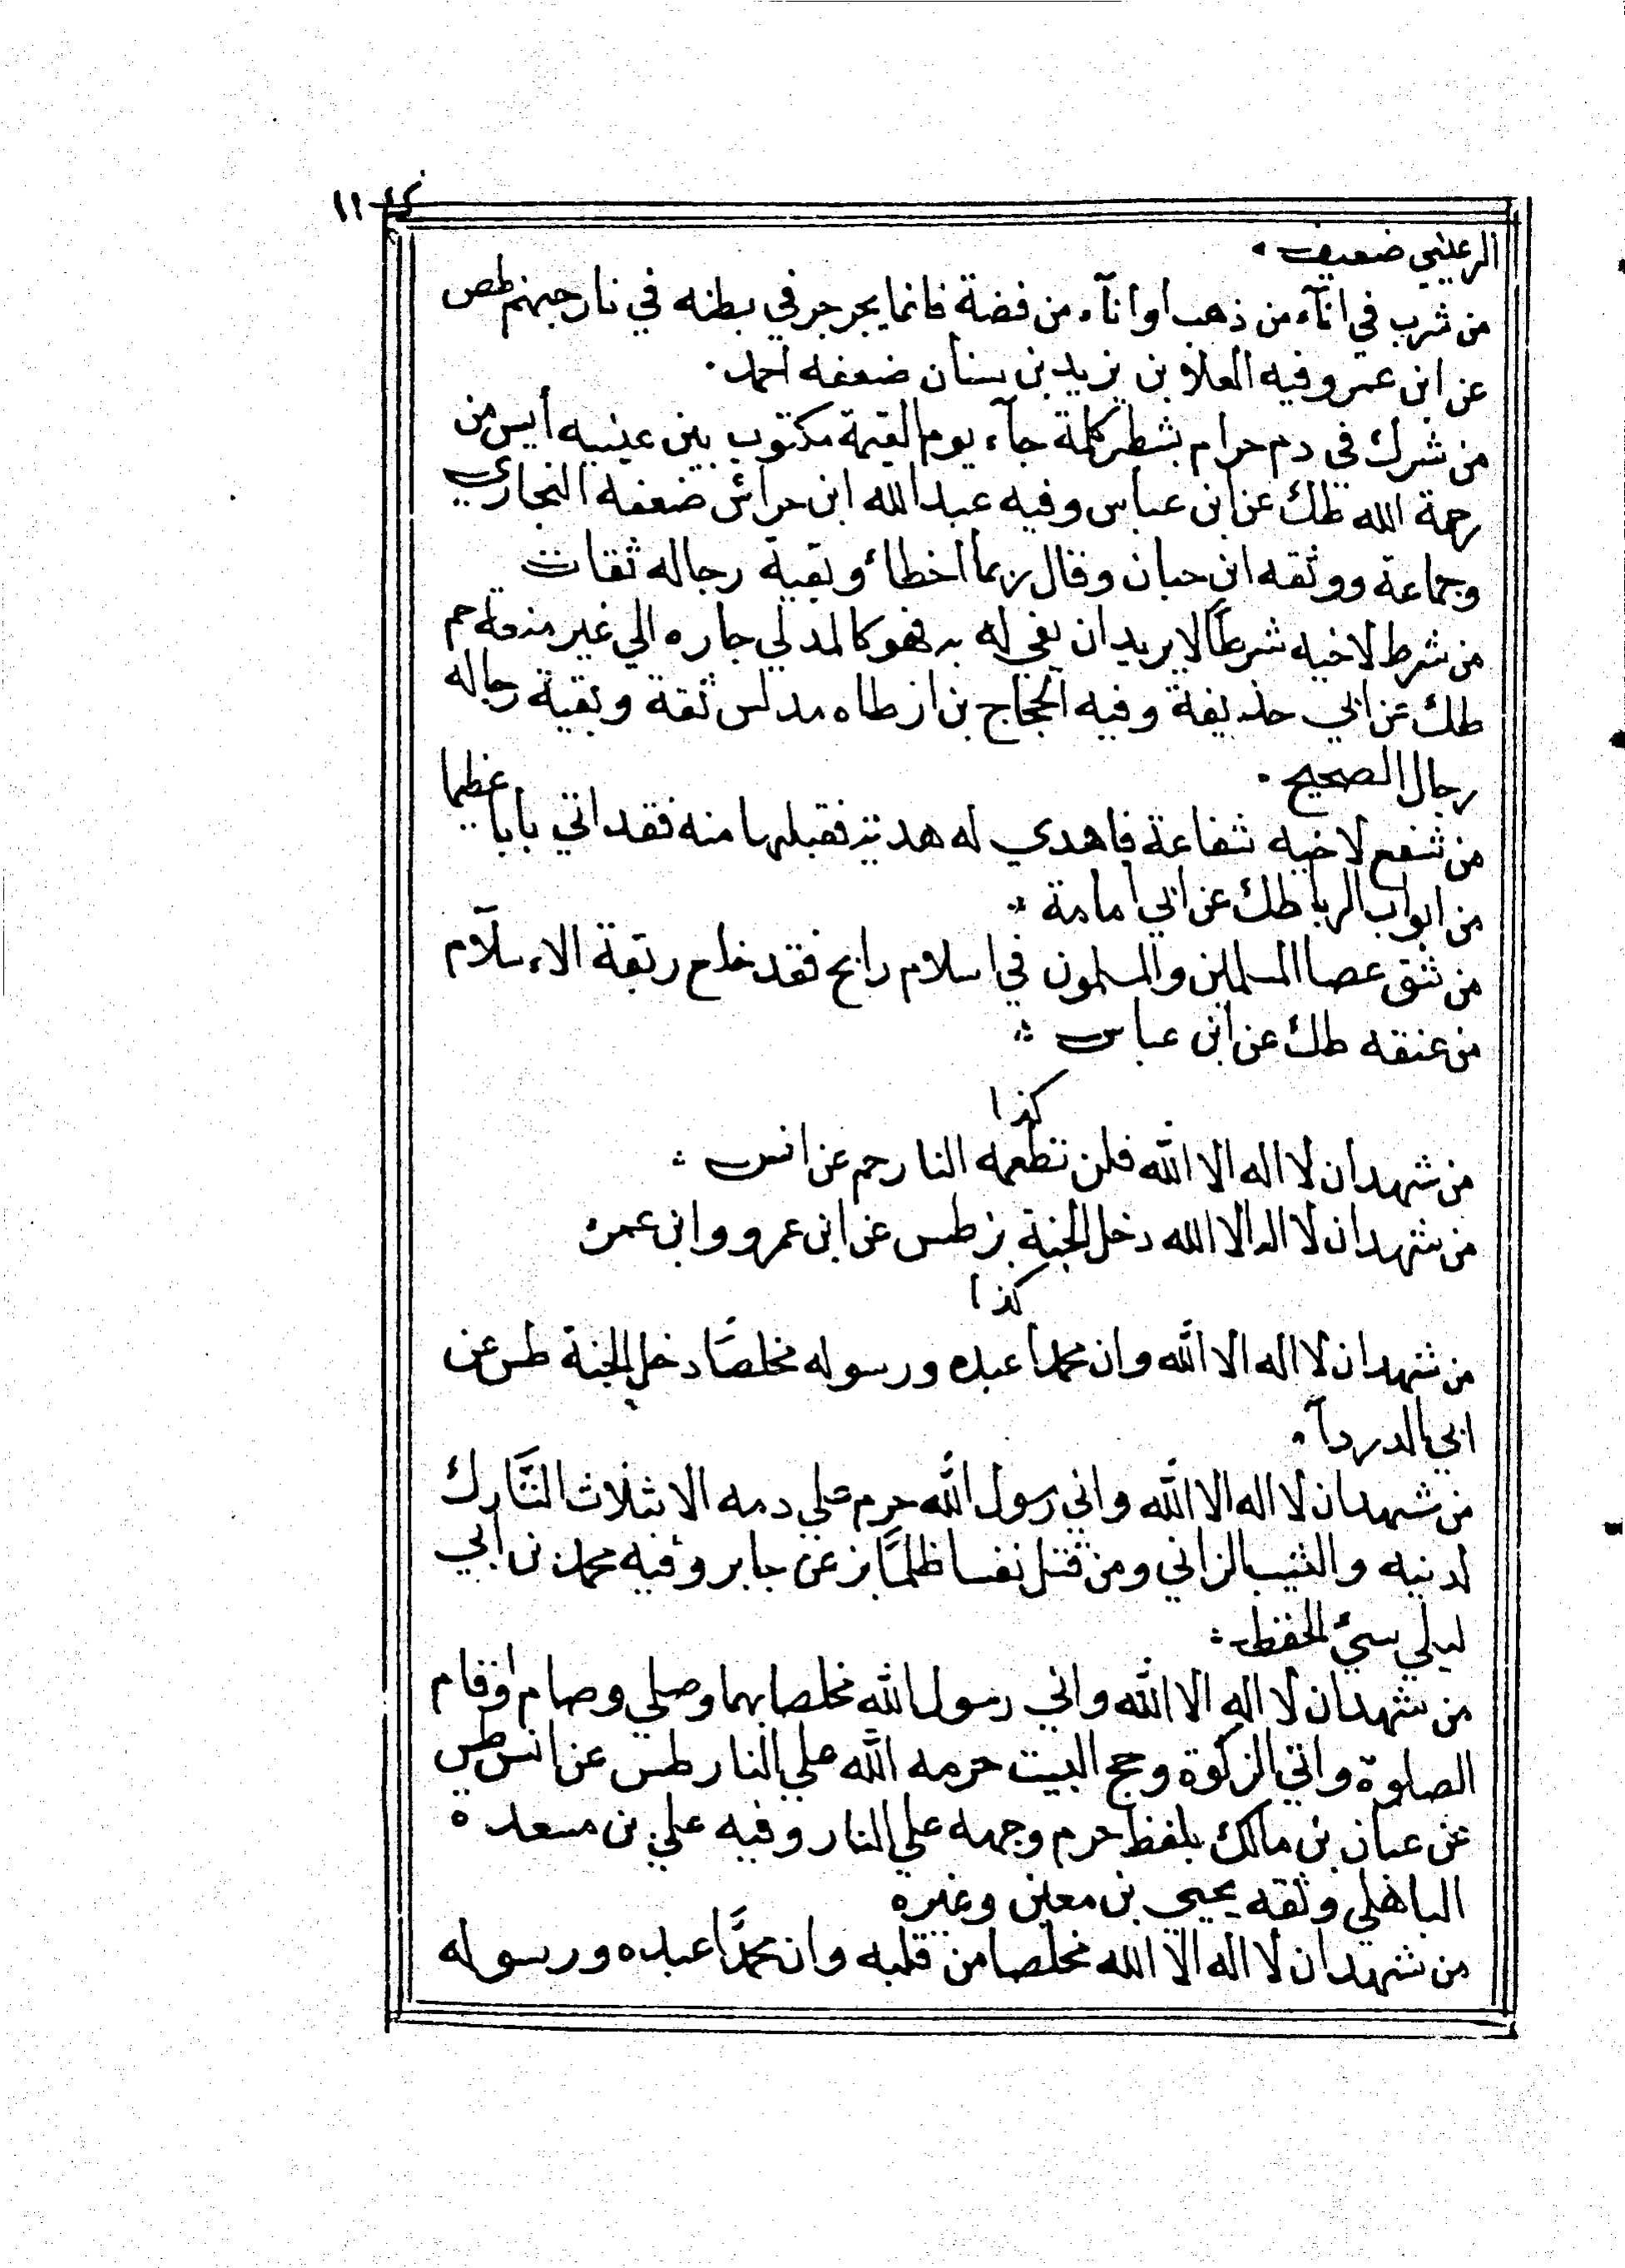 الرعيني ضعيف
من شرب في انآء من ذهب او انآء من فضة فانما يجرجر في بطنه في نار جهنم طص
عن ابن عمر وفيه العلا بن يزيد بن سنان ضعفه احمد
من شرك في دم حرام بشطر كلمة جآء يوم القيمة مكتوب بين عينيه أيس من
رحمة الله طك عن ابن عباس وفيه عبد الله ابن حراش ضعفه البخاري
وجماعة ووثقه ابن حبان وقال ربما اخطاء وبقية رجاله ثقات
من شرط لاخيه شرطاً لا يريد ان يفي له به فهو كالمدلي جاره الي غير منعة حم
طك عن ابي حذيفة وفيه الحجاج بن ارطاه مدلس ثقة وبقية رجاله
رجال الصحيح
من شفع لاخيه شفاعة فاهدي له هدية فقبلها منه فقد اتي بابا عظيما
من ابواب الربا طك عن ابي امامة
من شق عصا المسلمين والمسلمون في اسلام رابح فقد خلع ربقة الاسلام
من عنقه طك عن ابن عباس
كذا
من شهد ان لا اله الا الله فلن تطعمه النار حم عن انس
من شهد ان لا اله الا الله دخل الجنة بز طس عن ابن عمرو وابن عمر
كذا
من شهد ان لا اله الا الله وان محمدا عبده ورسوله مخلصاً دخل الجنة طس عن
ابي الدردآ
من شهد ان لا اله الا الله واني رسول الله حرم علي دمه الا بثلاث التارك
لدينه والثيب الزاني ومن قتل نفسا ظلماً بز عن جابر وفيه محمد بن ابي
ليلي سيئ الحفظ
من شهد ان لا اله الا الله واني رسول الله مخلصا بهما وصلي وصام اوقام
الصلوة واتي الزكوة وحج البيت حرمه الله علي النار طس عن انس طس
عن عبان بن مالك بلفظ حرم وجهه علي النار وفيه علي بن مسعدة
الباهلي وثقه يحيي بن معين وغيره
من شهد ان لا اله الا الله مخلصا من قلبه وان محمداً عبده ورسوله